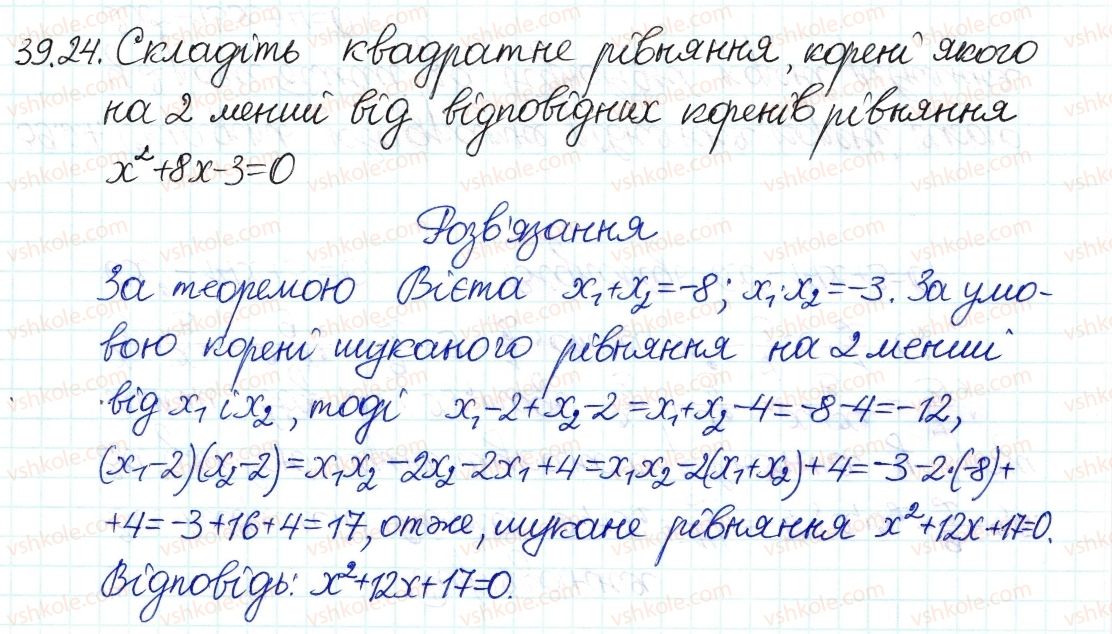 39.24. Складіть квадратне рівняння, корені якого
на 2 менші від відповідних коренів рівняння
x²+8x-3=0
Розв'язання
За теоремою Вієта x₁+x₂=-8; x₁·x₂=-3. За умо-
вою корені шуканого рівняння на 2 менші
від x₁ і x₂, тоді x₁-2+x₂-2=x₁+x₂-4=-8-4=-12,
(x₁-2)(x₂-2)=x₁x₂-2x₂-2x₁+4=x₁x₂-2(x₁+x₂)+4=-3-2·(-8)+
+4=-3+16+4=17, отже, шукане рівняння x²+12x+17=0.
Відповідь: x²+12x+17=0.